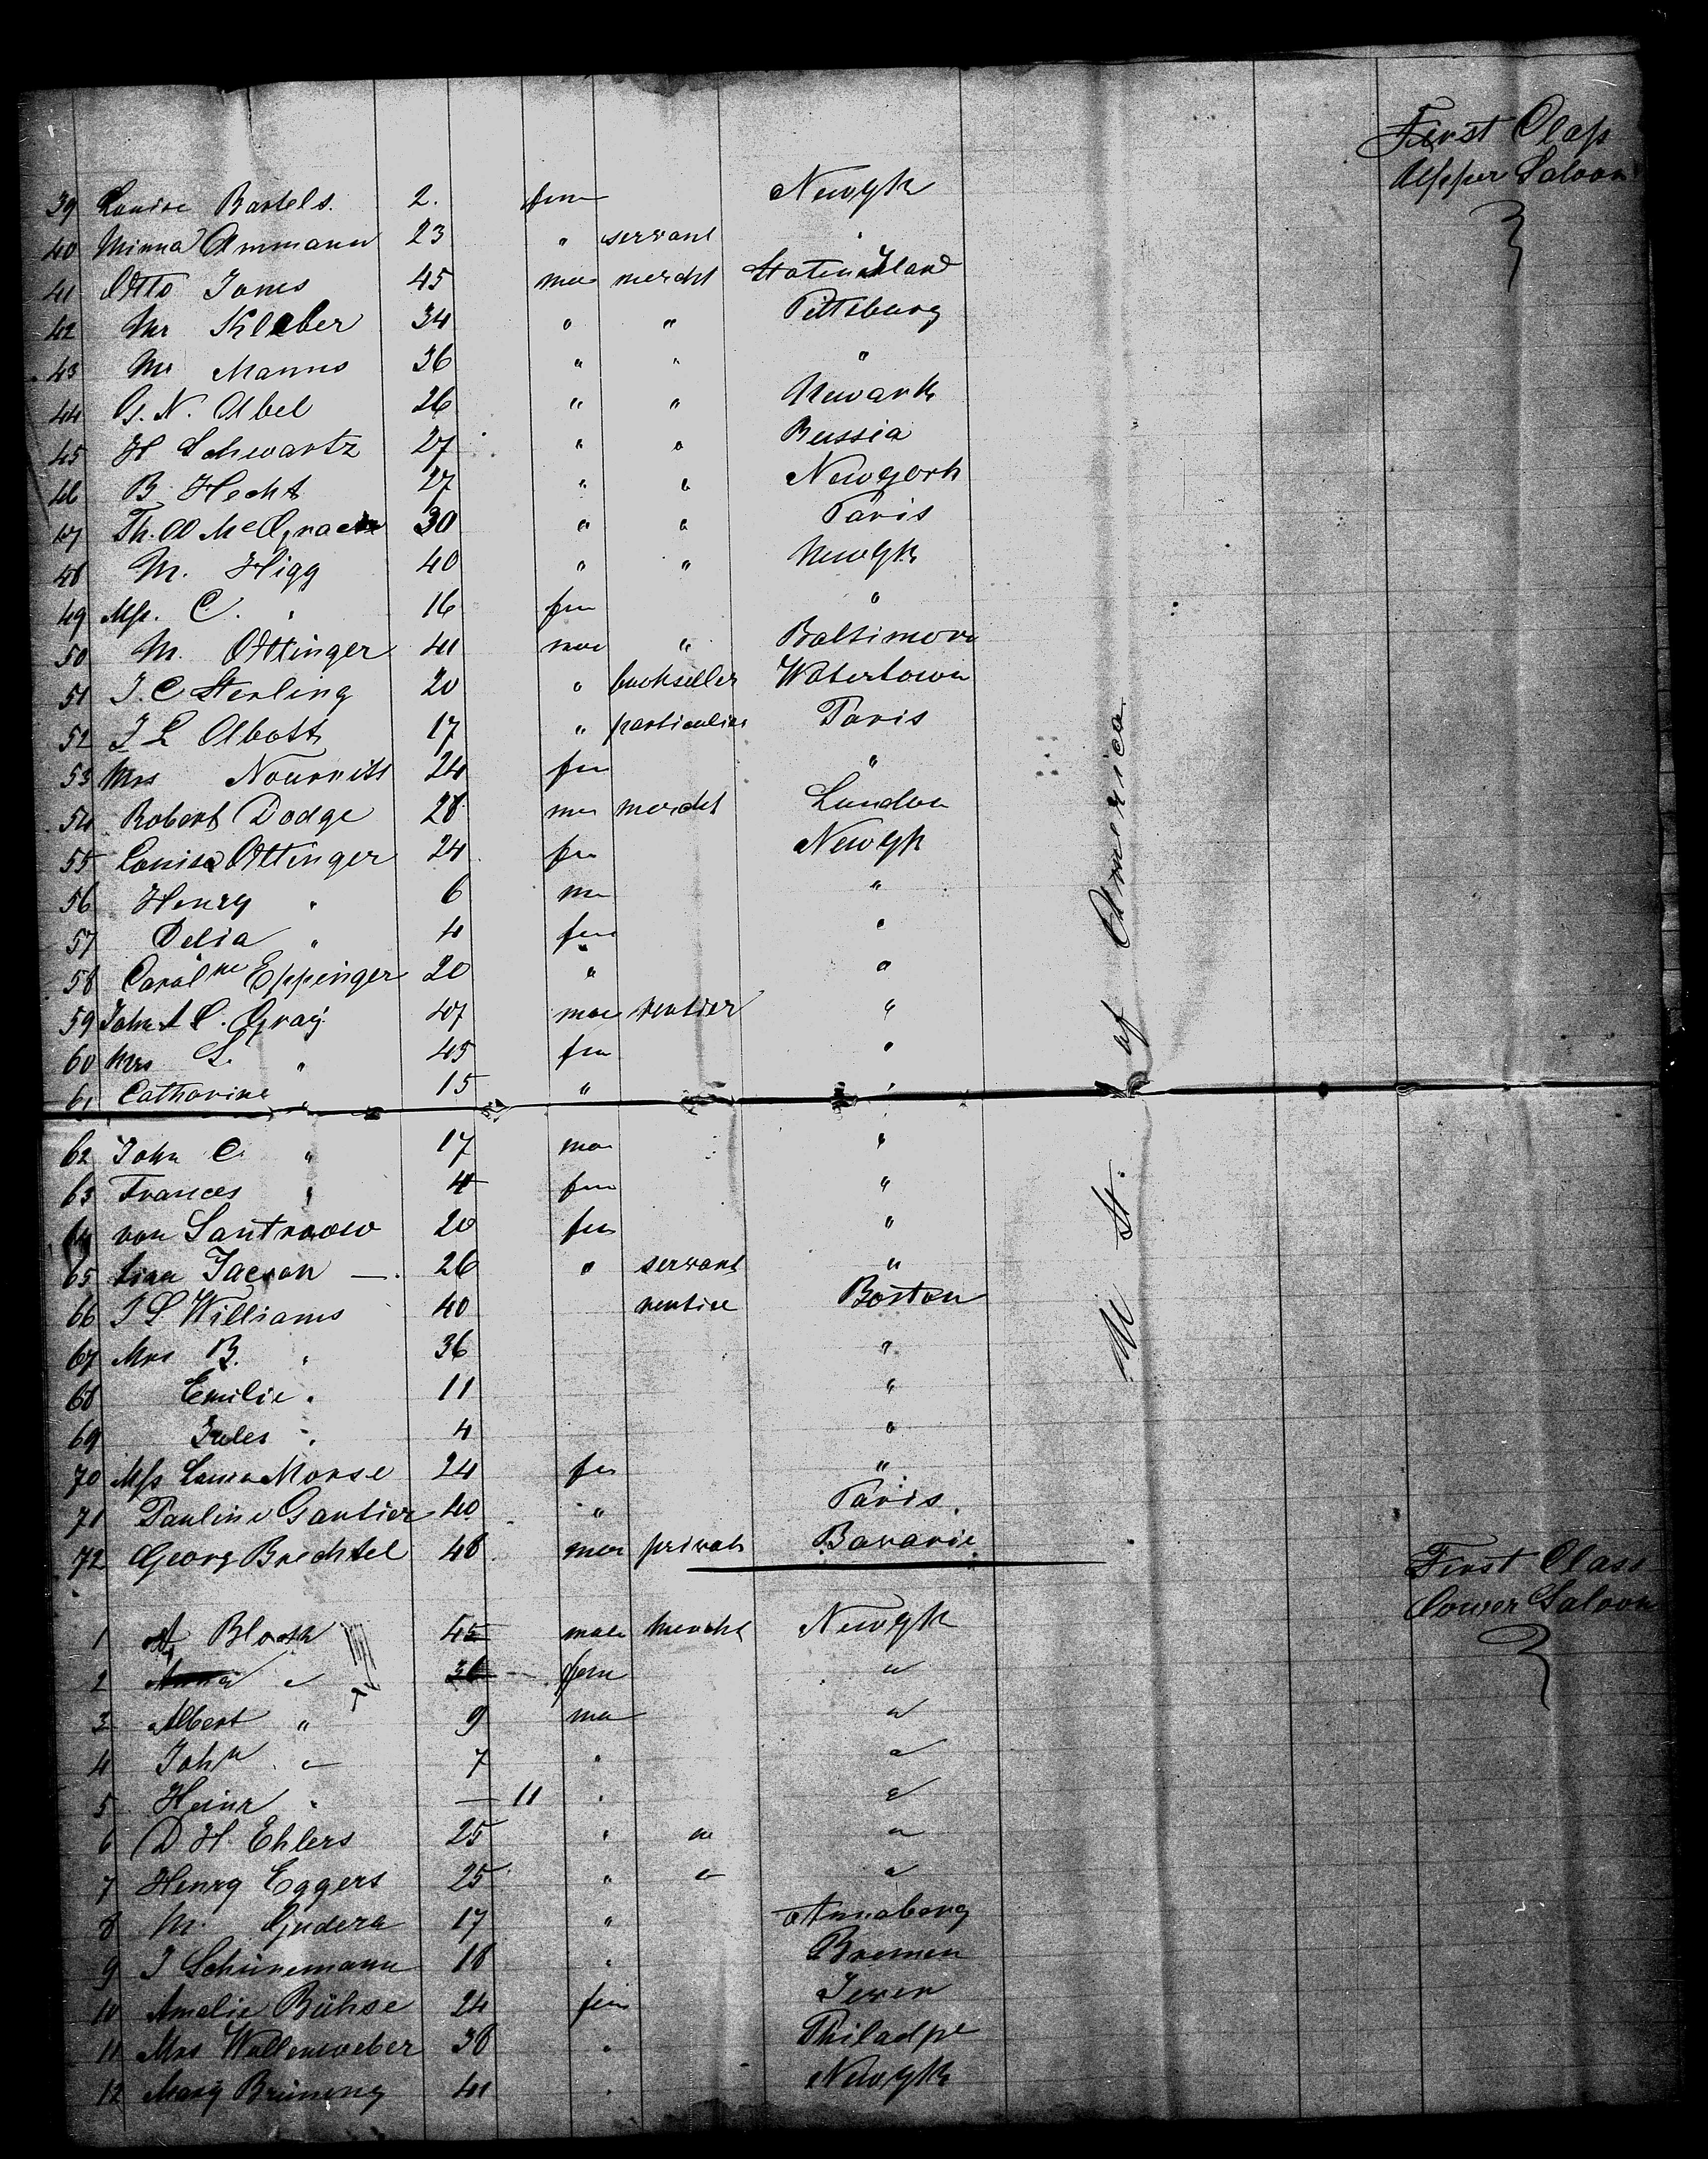 First Class
Upper Saloon
39 Louise Bartels. 2. fem Newyk
40 Minna Ammann 23 " servant "
41 Otto Joms 45 mae mercht Staten Iland
42 Mr Kleber 34 " " Pittsburg
43 Mr Manns 36 " " "
44 G. N. Abel 26 " " Newark
45 H Schwartz 27 " " Russia
46 B. Hecht 27 " " Newyork
47 Th. A 30 " " Paris
48 M. Higg 40 " " Newyk
49 Mss. C. " 16 fem "
50 M. Ottinger 41 mae " Baltimore
51 J. C Sterling 20 " bookseller Watertown
52 J L Abott 17 " particulier Paris
53 Mrs 24 fem "
54 Robert Dodge 28 mae mercht London
55 Louisa Ottinger 24 fem Newyk
56 Henry " 6 mae "
57 Delia " 4 fem "
58 Carolne Eppinger 20 " "
59 John A C. Gray 47 mae rentier "
60 Mrs S. " 45 fem "
61 Catharine " 15 " "
62 John C. " 17 mae "
63 Frances " 4 fem "
64 von 20 fem "
65 Lina Jacson 26 " servant "
66 J S Williams 40 rentier Boston
67 Mrs B. " 36 "
68 Emilie " 11 "
69 Jules " 4 "
70 Mss Laura Morse 24 fem "
71 Pauline Gautier 40 " Paris.
72 Georg Brechtel 48 mae privat Bavarie
U St. of America
First Class
Lower Saloon
1 Blosh 45 male mercht Newyk
2 Anna " 36 fem "
3 Albert " 9 mae "
4 John " 7 " "
5 Heinr " — 11 " "
6 D H. Ehlers 25 " " "
7 Henry Eggers 25 " " "
8 M. Gudera 17 " Annaberg
9 J Schünemann 18 " Bremen
10 Amelie Bühse 24 fem Jever
11 Mrs Wollenweber 38 " Philadpe
12 Mary Brüning 41 " Newyk